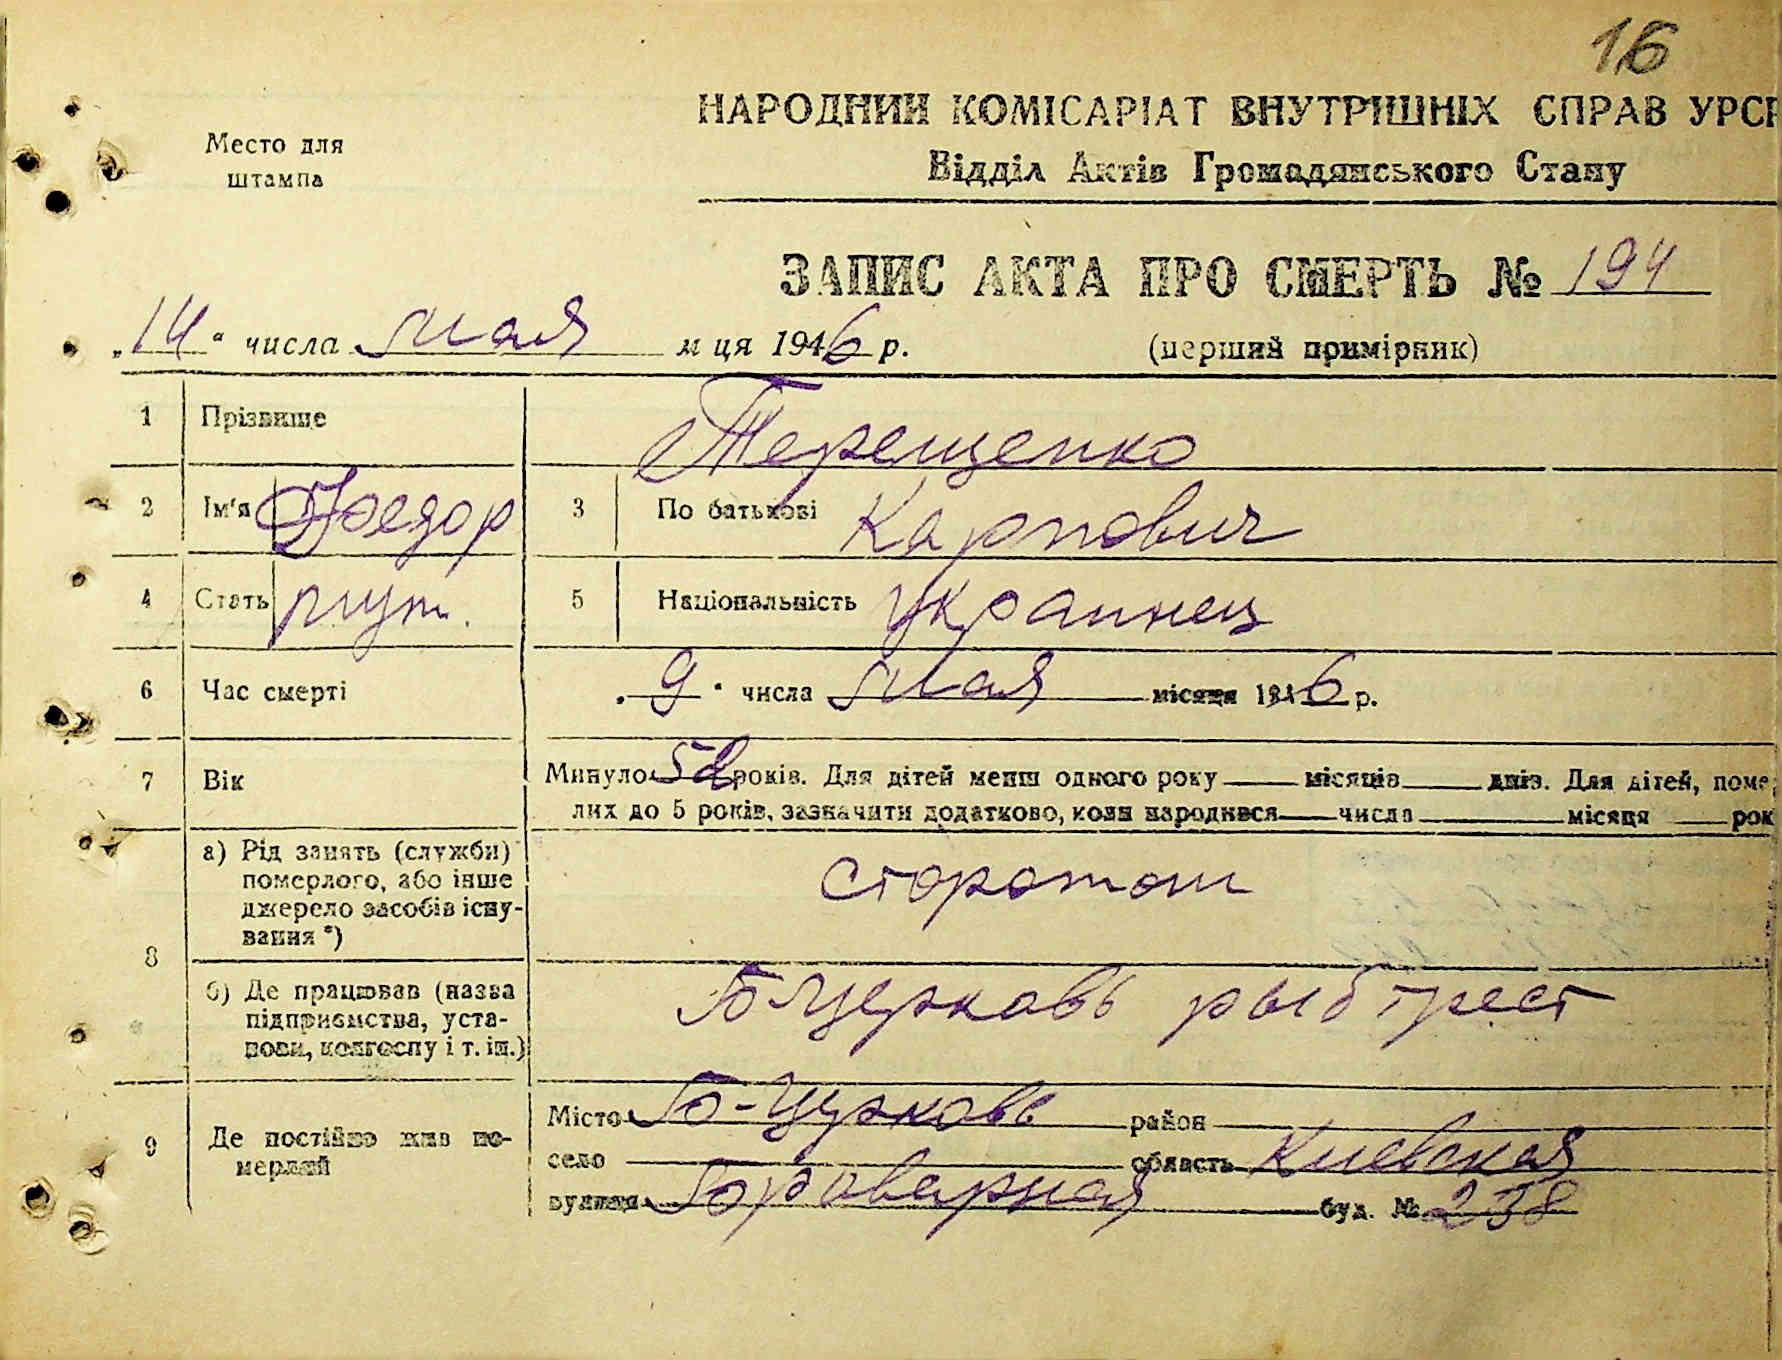 16
НАРОДНИЙ КОМІСАРІАТ ВНУТРИШНІХ СПРАВ УРСР
Место для штампа
Відділ Актів Громадянського Стану
ЗАПИС АКТА ПРО СМЕРТЬ № 194
„14" числа мая м ця 1946 р. (перший примірник)
1 Прізвище Терещенко
2 Ім'я Федор 3 По батькові Карпович
4 Стать муж. 5 Національність украинец
6 Час смерті „9" числа мая місяця 1946 р.
7 Вік Минуло 52 років. Для дітей менш одного року місяців днів. Для дітей, поме
лих до 5 років, зазначити додатково, коли народився числа місяця рок
8 а) Рід занять (служби) померлого, або інше джерело засобів існу-вання *) сторожом
б) Де працював (назва підприємства, уста-нови, колгоспу і т. ін.) Б-Церковь рыбтрест
9 Де постійно жив по-мерлий Місто Б-Церковь район
село область Киевская
вулиця Броварная буд. № 238